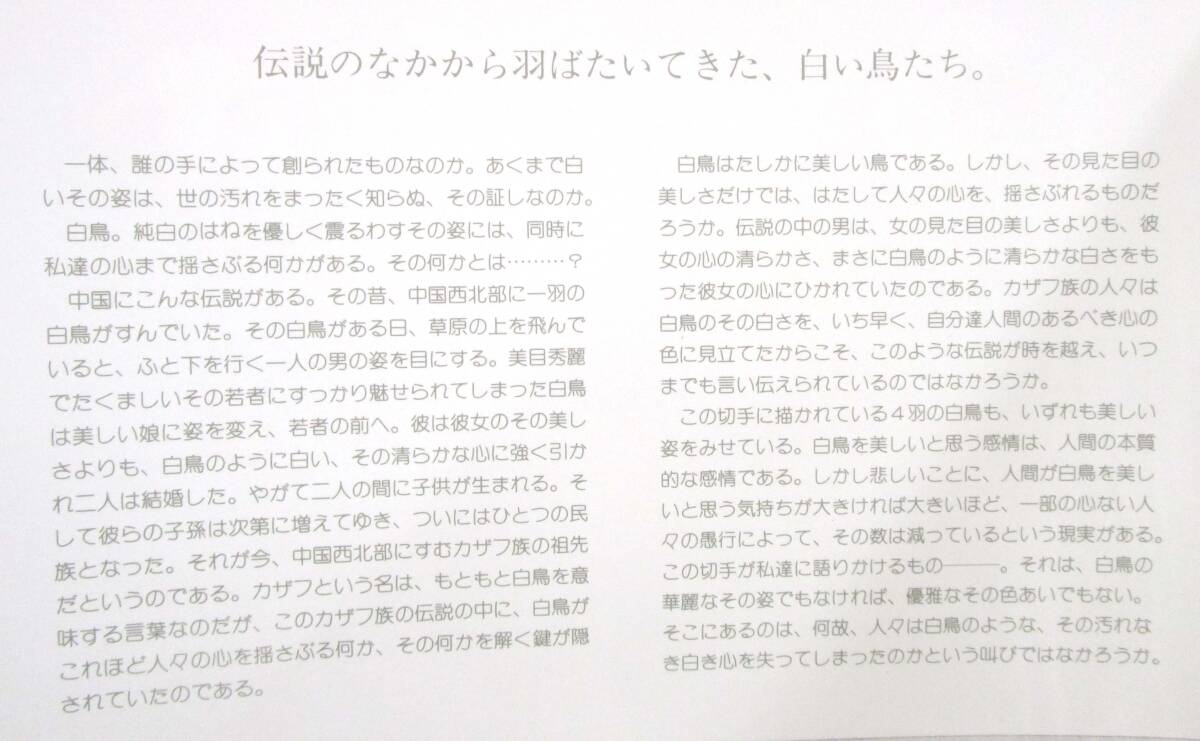 伝説のなかから羽ばたいてきた、白い鳥たち。
一体、誰の手によって創られたものなのか。あくまで白
いその姿は、世の汚れをまったく知らぬ、その証しなのか。
白鳥。純白のはねを優しく震るわすその姿には、同時に
私達の心まで揺さぶる何かがある。その何かとは………？
中国にこんな伝説がある。その昔、中国西北部に一羽の
白鳥がすんでいた。その白鳥がある日、草原の上を飛んで
いると、ふと下を行く一人の男の姿を目にする。美目秀麗
でたくましいその若者にすっかり魅せられてしまった白鳥
は美しい娘に姿を変え、若者の前へ。彼は彼女のその美し
さよりも、白鳥のように白い、その清らかな心に強く引か
れ二人は結婚した。やがて二人の間に子供が生まれる。そ
して彼らの子孫は次第に増えてゆき、ついにはひとつの民
族となった。それが今、中国西北部にすむカザフ族の祖先
だというのである。カザフという名は、もともと白鳥を意
味する言葉なのだが、このカザフ族の伝説の中に、白鳥が
これほど人々の心を揺さぶる何か、その何かを解く鍵が隠
されていたのである。
白鳥はたしかに美しい鳥である。しかし、その見た目の
美しさだけでは、はたして人々の心を、揺さぶれるものだ
ろうか。伝説の中の男は、女の見た目の美しさよりも、彼
女の心の清らかさ、まさに白鳥のように清らかな白さをも
った彼女の心にひかれていたのである。カザフ族の人々は
白鳥のその白さを、いち早く、自分達人間のあるべき心の
色に見立てたからこそ、このような伝説が時を越え、いつ
までも言い伝えられているのではなかろうか。
この切手に描かれている４羽の白鳥も、いずれも美しい
姿をみせている。白鳥を美しいと思う感情は、人間の本質
的な感情である。しかし悲しいことに、人間が白鳥を美し
いと思う気持ちが大きければ大きいほど、一部の心ない人
々の愚行によって、その数は減っているという現実がある。
この切手が私達に語りかけるもの―――。それは、白鳥の
華麗なその姿でもなければ、優雅なその色あいでもない。
そこにあるのは、何故、人々は白鳥のような、その汚れな
き白き心を失ってしまったのかという叫びではなかろうか。